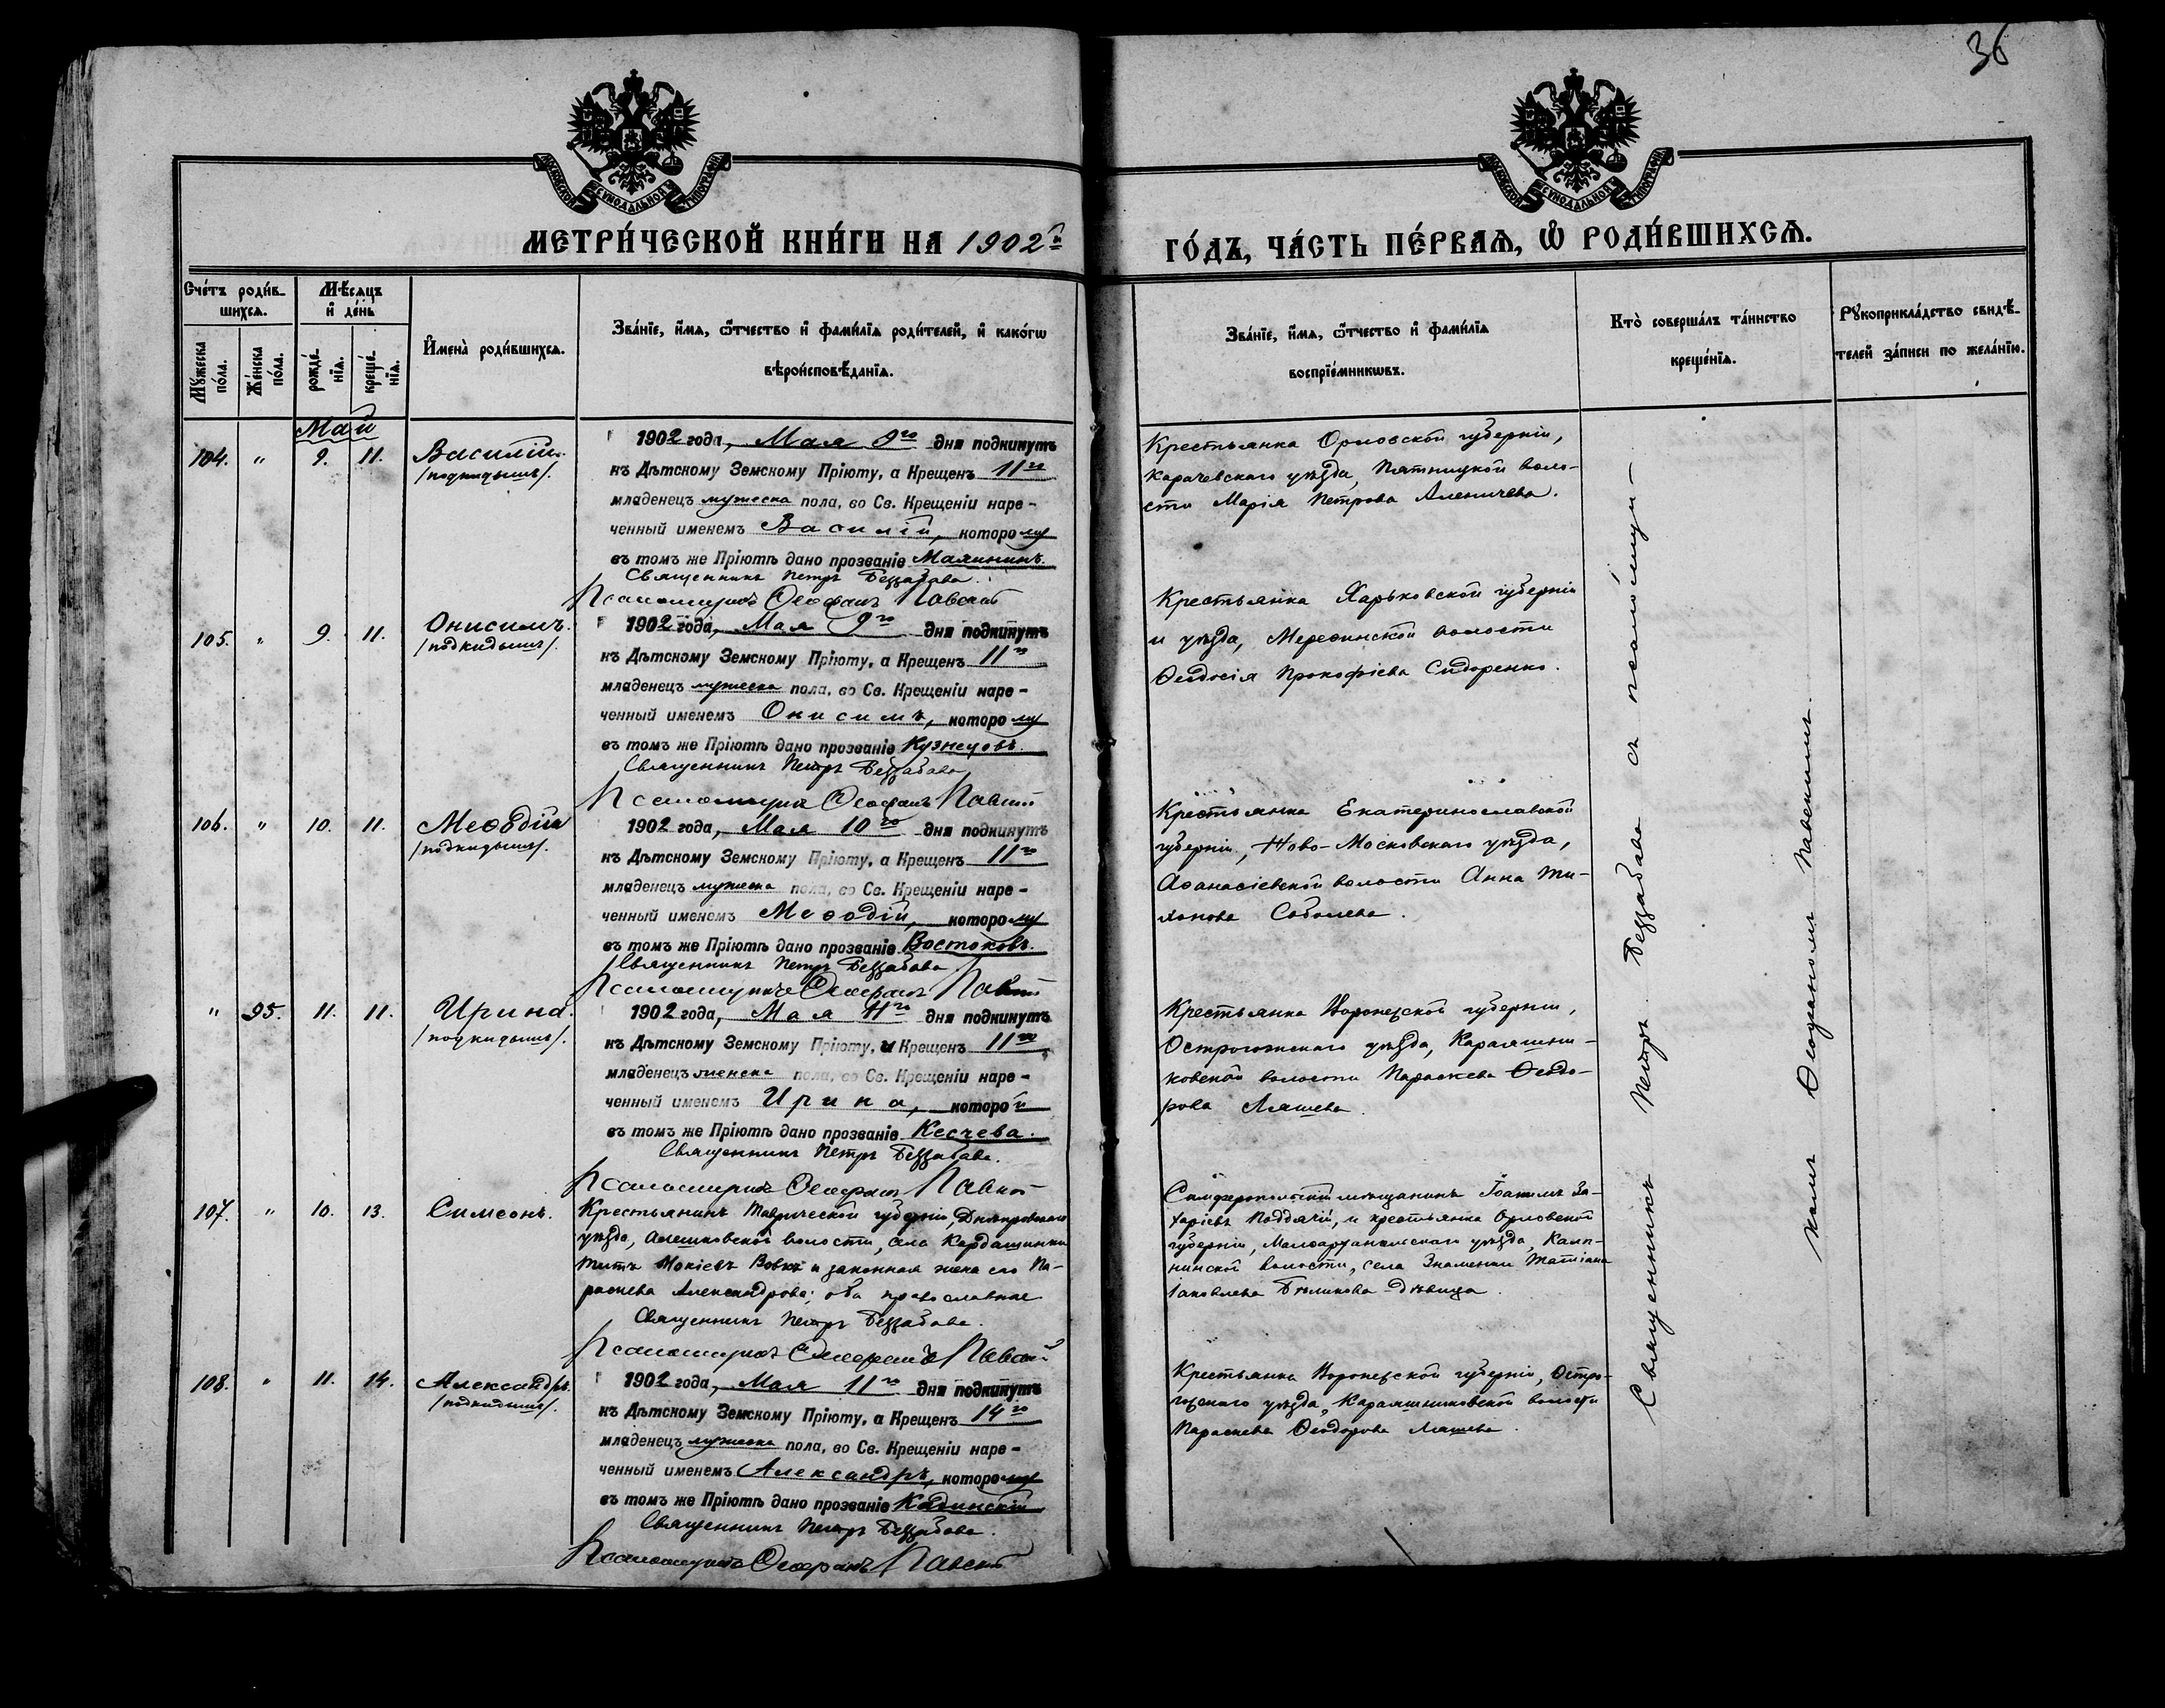 36
МОСКОВСКОЙ СУНОДАЛЬНОЙ ТИПОГРАФІИ
МОСКОВСКОЙ СУНОДАЛЬНОЙ ТИПОГРАФІИ
МЕТРИ́ЧЕСКОЙ КНИ́ГИ НА 1902й
ГО́ДЪ, ЧА́СТЬ ПЕ́РВАѦ, Ѡ҆ РОДИ́ВШИХСѦ.
Сче́тъ роди́в-
шихсѧ.
Мꙋ́жеска по́ла.
Же́нска по́ла.
Мѣ́сѧцъ
и҆ де́нь
рожде́-
нїѧ.
креще́-
нїѧ.
И҆мена̀ роди́вшихсѧ.
Зва́нїе, и҆́мѧ, ѻ҆́тчество и҆ фами́лїѧ роди́телей, и҆ како́гѡ
вѣроисповѣ́данїѧ.
Зва́нїе, и҆́мѧ, ѻ҆́тчество и҆ фами́лїѧ
воспрїе́мникѡвъ.
Кто̀ соверша́лъ та́инство
креще́нїѧ.
Рꙋкоприкла́дство свидѣ́-
телей за́писи по жела́нїю.
Май
104. " 9. 11. Василій.
/подкидышъ/.
1902 года, Мая 9го дня подкинутъ
къ Дѣтскому Земскому Пріюту, а Крещенъ 11го
младенецъ мужеска пола, во Св. Крещеніи наре-
ченный именемъ Василій, которому
въ томъ же Пріютѣ дано прозваніе Малининъ.
Священникъ Петръ Беззабава.
Псаломщикъ Ѳеофанъ Павскій
Крестьянка Орловской губерніи,
Карачевскаго уѣзда, Пятницкой воло-
сти Марія Петрова Аленичева.
105. " 9. 11. Онисимъ.
/подкидышъ/.
1902 года, Мая 9го дня подкинутъ
къ Дѣтскому Земскому Пріюту, а Крещенъ 11го
младенецъ мужеска пола, во Св. Крещеніи наре-
ченный именемъ Онисимъ, которому
въ томъ же Пріютѣ дано прозваніе Кузнецовъ.
Священникъ Петръ Беззабава
Псаломщикъ Ѳеофанъ Павскій
Крестьянка Харьковской губерніи
и уѣзда, Мерефинской волости
Ѳеодосія Прокофіева Сидоренко.
106. " 10. 11. Меѳодій
/подкидышъ/.
1902 года, Мая 10го дня подкинутъ
къ Дѣтскому Земскому Пріюту, а Крещенъ 11го
младенецъ мужеска пола, во Св. Крещеніи наре-
ченный именемъ Меѳодій, которому
въ томъ же Пріютѣ дано прозваніе Востоковъ.
Священникъ Петръ Беззабава
Псаломщикъ Ѳеофанъ Павскій
Крестьянка Екатеринославской
губерніи, Ново-Московскаго уѣзда,
Аѳанасіевской волости Анна Ти-
хонова Соболева.
" 95. 11. 11. Ирина.
/подкидышъ/.
1902 года, Мая 11го дня подкинутъ
къ Дѣтскому Земскому Пріюту, и Крещенъ 11го
младенецъ женска пола, во Св. Крещеніи наре-
ченный именемъ Ирина, которой
въ томъ же Пріютѣ дано прозваніе Кесчева.
Священникъ Петръ Беззабава.
Псаломщикъ Ѳеофанъ Павскій
Крестьянка Воронежской губерніи,
Острогожскаго уѣзда, Караяшни-
ковской волости Параскева Ѳеодо-
рова Ляшева.
107. " 10. 13. Симеонъ.
Крестьянинъ Таврической губерніи, Днѣпровскаго
уѣзда, Алешковской волости, села Кардашинки
Титъ Мокіевъ Вовкъ и законная жена его Па-
раскева Александрова; оба православные
Священникъ Петръ Беззабава.
Псаломщикъ Ѳеофанъ Павскій
Симферопольскій мѣщанинъ Іоакимъ За-
харіевъ Поддячій, и крестьянка Орловской
губерніи, Малоархангельскаго уѣзда,
волости, села Знаменки Татіана
Іаковлева Бѣликова-дѣвица.
108. " 11. 14. Александръ.
/подкидышъ/.
1902 года, Мая 11го дня подкинутъ
къ Дѣтскому Земскому Пріюту, а Крещенъ 14го
младенецъ мужеска пола, во Св. Крещеніи наре-
ченный именемъ Александръ, которому
въ томъ же Пріютѣ дано прозваніе Кадинскій
Священникъ Петръ Беззабава.
Псаломщикъ Ѳеофанъ Павскій
Крестьянка Воронежской губерніи, Остро-
гожскаго уѣзда, Караяшниковской волости
Параскева Ѳеодорова Ляшева.
Священникъ Петръ Беззабава съ псаломщи-
комъ Ѳеофаномъ Павскимъ.